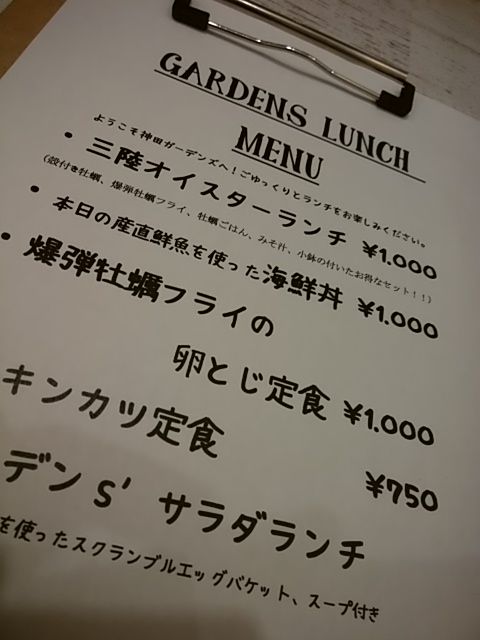 GARDENS LUNCH
MENU
ようこそ神田ガーデンズへ！ごゆっくりとランチをお楽しみください。
・三陸オイスターランチ ¥1.000
(殻付き牡蠣、爆弾牡蠣フライ、牡蠣ごはん、みそ汁、小鉢の付いたお得なセット！！)
・本日の産直鮮魚を使った海鮮丼 ¥1.000
・爆弾牡蠣フライの
卵とじ定食 ¥1.000
キンカツ定食
¥750
デンs' サラダランチ
を使ったスクランブルエッグバケット、スープ付き